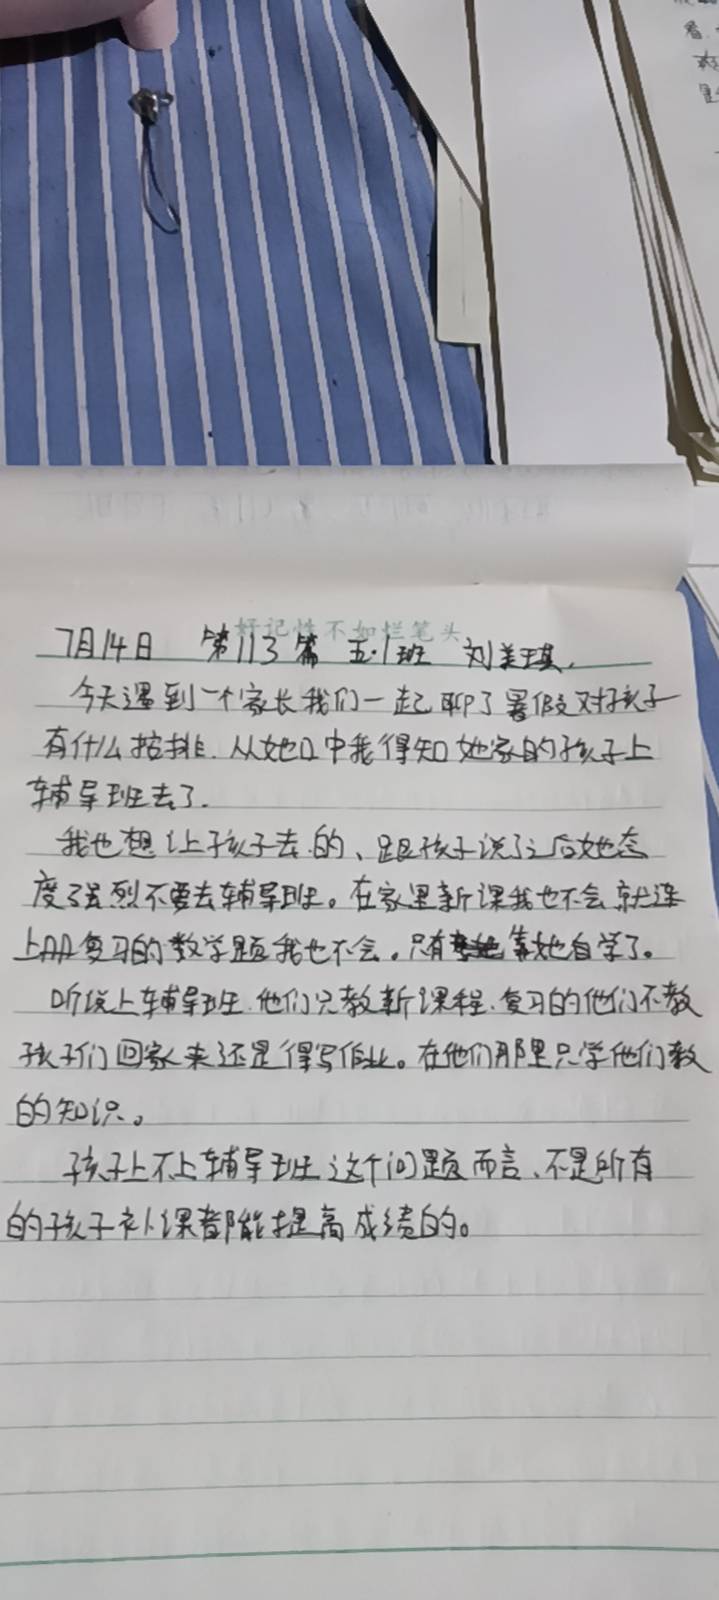 好记性不如烂笔头
7月14日 第113篇 五.1班 刘美琪.
今天遇到一个家长我们一起聊了暑假对孩子
有什么按排.从她口中我得知她家的孩子上
辅导班去了.
我也想让孩子去的、跟孩子说了之后她态
度强烈不要去辅导班。在家里新课我也不会就连
上册复习的数学题我也不会。只有靠她自学了。
听说上辅导班.他们只教新课程.复习的他们不教
孩子们回家来还是得写作业。在他们那里只学他们教
的知识。
孩子上不上辅导班这个问题而言、不是所有
的孩子补课都能提高成绩的。